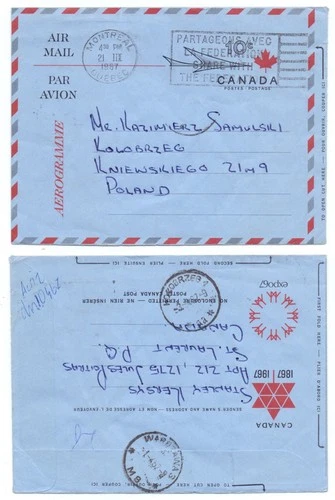 AIR
MAIL
PAR
AVION
AEROGRAMME
MONTREAL
4:00 PM
21 IX
1967
QUEBEC
PARTAGEONS AVEC
LA FEDERATION
SHARE WITH
THE FE
10¢
CANADA
POSTES - POSTAGE
MR. KAZIMIERZ SAMULSKI
KOLOBRZEG
KNIEWSKIEGO 21M9
POLAND
TO OPEN CUT HERE
SECOND FOLD HERE — PLIER ENSUITE ICI
NO ENCLOSURE PERMITTED — NE RIEN INSÉRER
CANADA POST POSTES
KOŁOBRZEG 1
STANLEY KERSYS
APT 212, 1275 JULES POITRAS
ST. LAURENT P.Q.
CANADA
SENDER'S NAME AND ADDRESS — NOM ET ADRESSE DE L'ENVOYEUR
expo67
1867 1967
CANADA
FIRST FOLD HERE — PLIER D'ABORD ICI
WARSZAWA 3
TO OPEN CUT HERE — POUR OUVRIR COUPER ICI